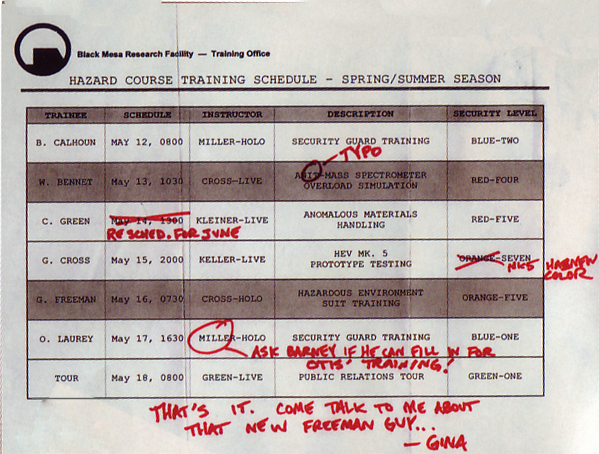 Black Mesa Research Facility — Training Office
HAZARD COURSE TRAINING SCHEDULE – SPRING/SUMMER SEASON
TRAINEE SCHEDULE INSTRUCTOR DESCRIPTION SECURITY LEVEL
B. CALHOUN MAY 12, 0800 MILLER-HOLO SECURITY GUARD TRAINING BLUE-TWO
TYPO
W. BENNET May 13, 1030 CROSS-LIVE ANIT-MASS SPECTROMETER OVERLOAD SIMULATION RED-FOUR
C. GREEN May 14, 1300 KLEINER-LIVE ANOMALOUS MATERIALS HANDLING RED-FIVE
RESCHED. FOR JUNE
G. CROSS May 15, 2000 KELLER-LIVE HEV MK. 5 PROTOTYPE TESTING ORANGE-SEVEN
MK5
COLOR
G. FREEMAN May 16, 0730 CROSS-HOLO HAZARDOUS ENVIRONMENT SUIT TRAINING ORANGE-FIVE
O. LAUREY May 17, 1630 MILLER-HOLO SECURITY GUARD TRAINING BLUE-ONE
ASK BARNEY IF HE CAN FILL IN FOR
OTIS' TRAINING!
TOUR May 18, 0800 GREEN-LIVE PUBLIC RELATIONS TOUR GREEN-ONE
THAT'S IT. COME TALK TO ME ABOUT
THAT NEW FREEMAN GUY...
— GINA